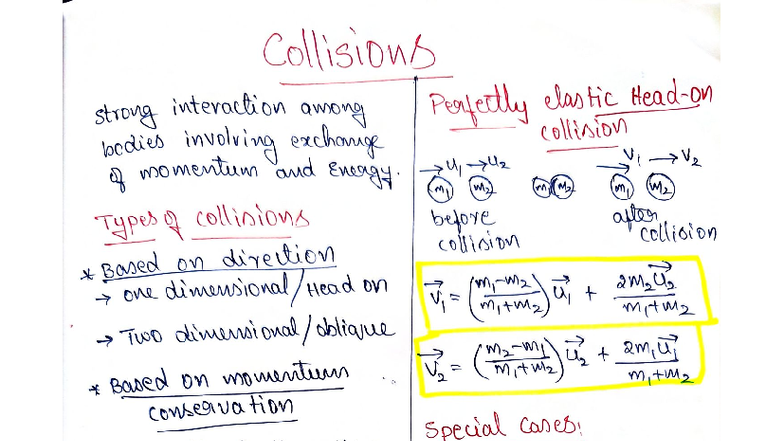 Collisions
strong interaction among
bodies involving exchange
of momentum and Energy.
Types of collisions
* Based on direction
→ one dimensional/Head on
→ Two dimensional/oblique
* Based on momentum
conservation
Perfectly elastic Head-on
collision
→u₁ →u₂ →v₁ →v₂
m₁ m₂ m₁ m₂ m₁ m₂
before after
collision collision
v⃗₁ = ((m₁-m₂)/(m₁+m₂)) u⃗₁ + 2m₂u⃗₂/(m₁+m₂)
v⃗₂ = ((m₂-m₁)/(m₁+m₂)) u⃗₂ + 2m₁u⃗₁/(m₁+m₂)
special cases: